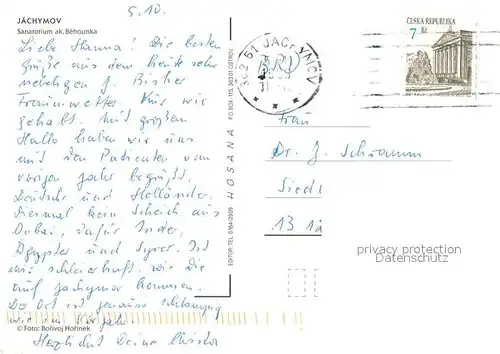 5.10.
JÁCHYMOV
Sanatorium ak. Běhounka
Liebe Hanna! Die besten
Grüße aus dem heute sehr
nebeligen J. Bisher
Traumwetter. Nur wie
gehabt. Mit großem
Hallo haben wir uns
mit den Patienten vom
vorigen Jahr begrüßt,
Deutsche und Holländer.
Diesmal kein Scheich aus
Dubai, dafür Inder,
Ägypter und Syrer. Ist
mir schleierhaft, wie die
auf Jachymov kommen.
Der Ort ist genauso
wie im Vorjahr.
Herzlichst Deine Christa
© Foto: Bolivoj Hořínek
EDITOR: TEL. 0164/2909
HOSANA
P.O. BOX 115, 363 01 OSTROV
362 51 JÁCHYMOV
ČESKÁ REPUBLIKA
7 Kč
Frau
Dr. J. Schramm
Sied
13 1
privacy protection
Datenschutz